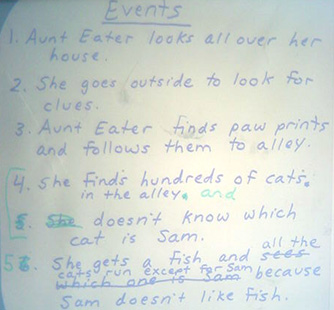 Events
1. Aunt Eater looks all over her
house.
2. She goes outside to look for
clues.
3. Aunt Eater finds paw prints
and follows them to alley.
4. She finds hundreds of cats.
in the alley. and
5. She doesn't know which
cat is Sam.
all the
5 6. She gets a fish and sees
cats run except for Sam because
which one is Sam
Sam doesn't like fish.